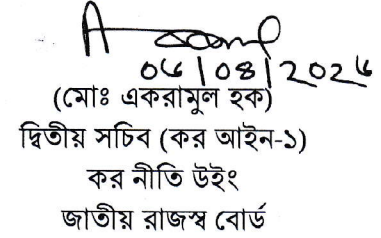 (মোঃ একরামুল হক)
দ্বিতীয় সচিব (কর আইন-১)
কর নীতি উইং
জাতীয় রাজস্ব বোর্ড